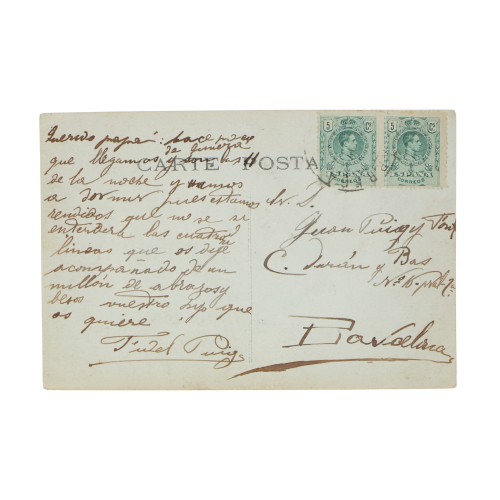 Querido papá: hace poco
de Guinza
que llegamos y son las 11
CARTE POSTA
de la noche y vamos
a dormir pues estamos
rendidos que no se si
entendera las cuatro
lineas que os dije
acompañado de un
millón de abrazos y
besos vuestro hijo que
os quiere
Fidel Puig
5 Cs 5 Cs
ESPAÑA ESPAÑA
CORREOS CORREOS
Sr. D.
Juan Puig y Font
C. Durán y Bas
Nº 16 - pral 2ª
Barcelona